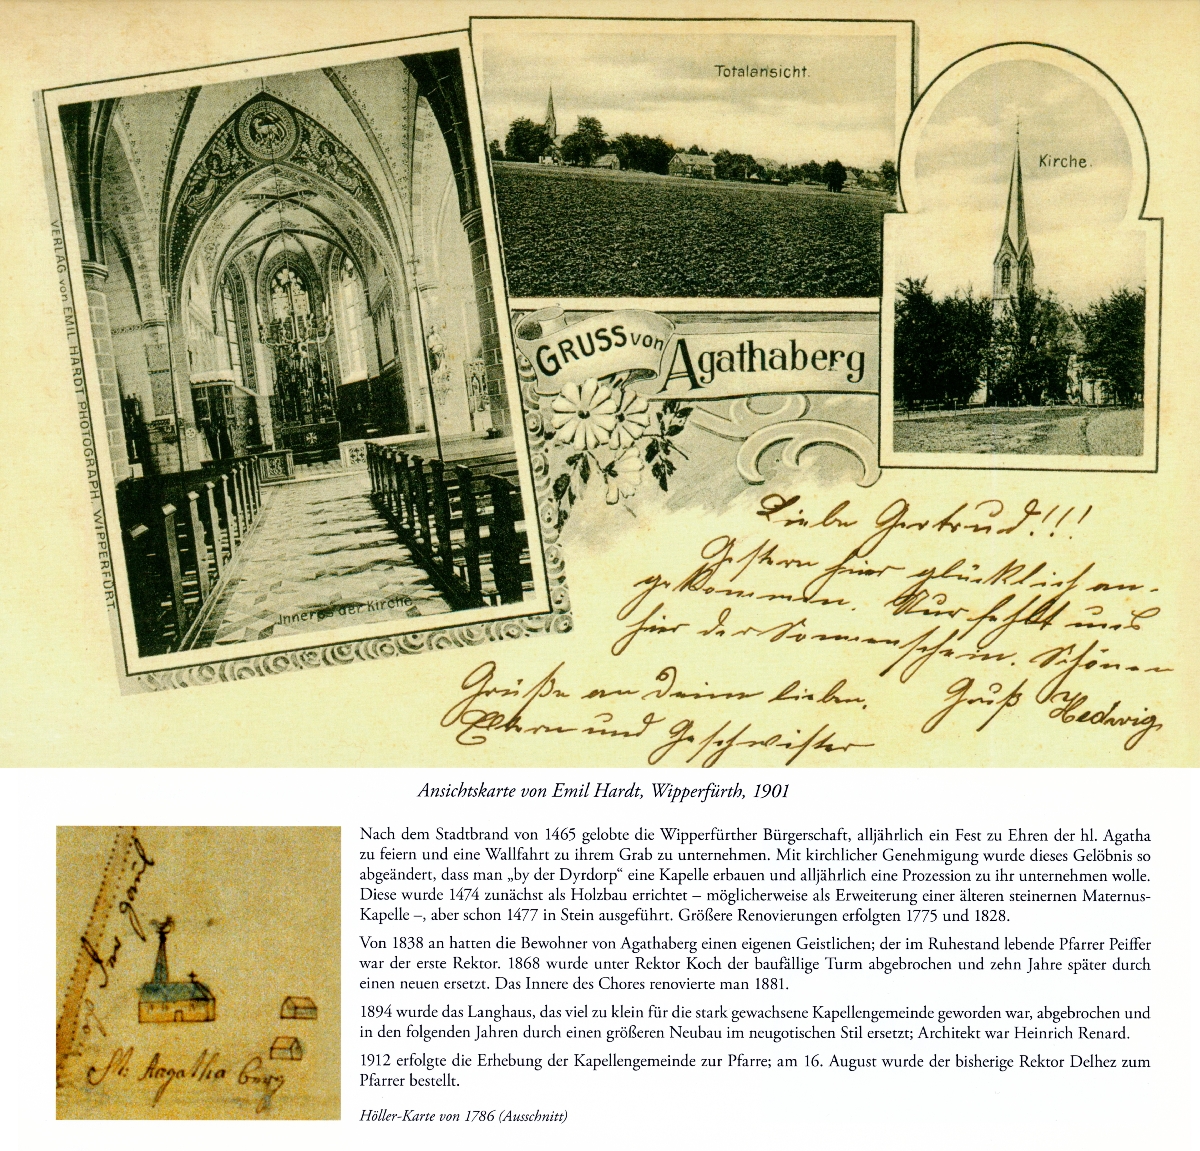 Totalansicht.
Kirche.
VERLAG von EMIL HARDT PHOTOGRAPH, WIPPERFÜRT.
GRUSS von
Agathaberg
Inneres der Kirche
Liebe Gertrud!!!
Gestern hier glücklich an-
gekommen. Nur fehlt uns
hier der Sonnenschein. Schönen
Grüße an Deine lieben,
Gruß Hedwig
Eltern und Geschwister
Ansichtskarte von Emil Hardt, Wipperfürth, 1901
Nach dem Stadtbrand von 1465 gelobte die Wipperfürther Bürgerschaft, alljährlich ein Fest zu Ehren der hl. Agatha
zu feiern und eine Wallfahrt zu ihrem Grab zu unternehmen. Mit kirchlicher Genehmigung wurde dieses Gelöbnis so
abgeändert, dass man „by der Dyrdorp“ eine Kapelle erbauen und alljährlich eine Prozession zu ihr unternehmen wolle.
Diese wurde 1474 zunächst als Holzbau errichtet – möglicherweise als Erweiterung einer älteren steinernen Maternus-
Kapelle –, aber schon 1477 in Stein ausgeführt. Größere Renovierungen erfolgten 1775 und 1828.
Von 1838 an hatten die Bewohner von Agathaberg einen eigenen Geistlichen; der im Ruhestand lebende Pfarrer Peiffer
war der erste Rektor. 1868 wurde unter Rektor Koch der baufällige Turm abgebrochen und zehn Jahre später durch
einen neuen ersetzt. Das Innere des Chores renovierte man 1881.
1894 wurde das Langhaus, das viel zu klein für die stark gewachsene Kapellengemeinde geworden war, abgebrochen und
in den folgenden Jahren durch einen größeren Neubau im neugotischen Stil ersetzt; Architekt war Heinrich Renard.
1912 erfolgte die Erhebung der Kapellengemeinde zur Pfarre; am 16. August wurde der bisherige Rektor Delhez zum
Pfarrer bestellt.
St: Aagatha berg
Höller-Karte von 1786 (Ausschnitt)